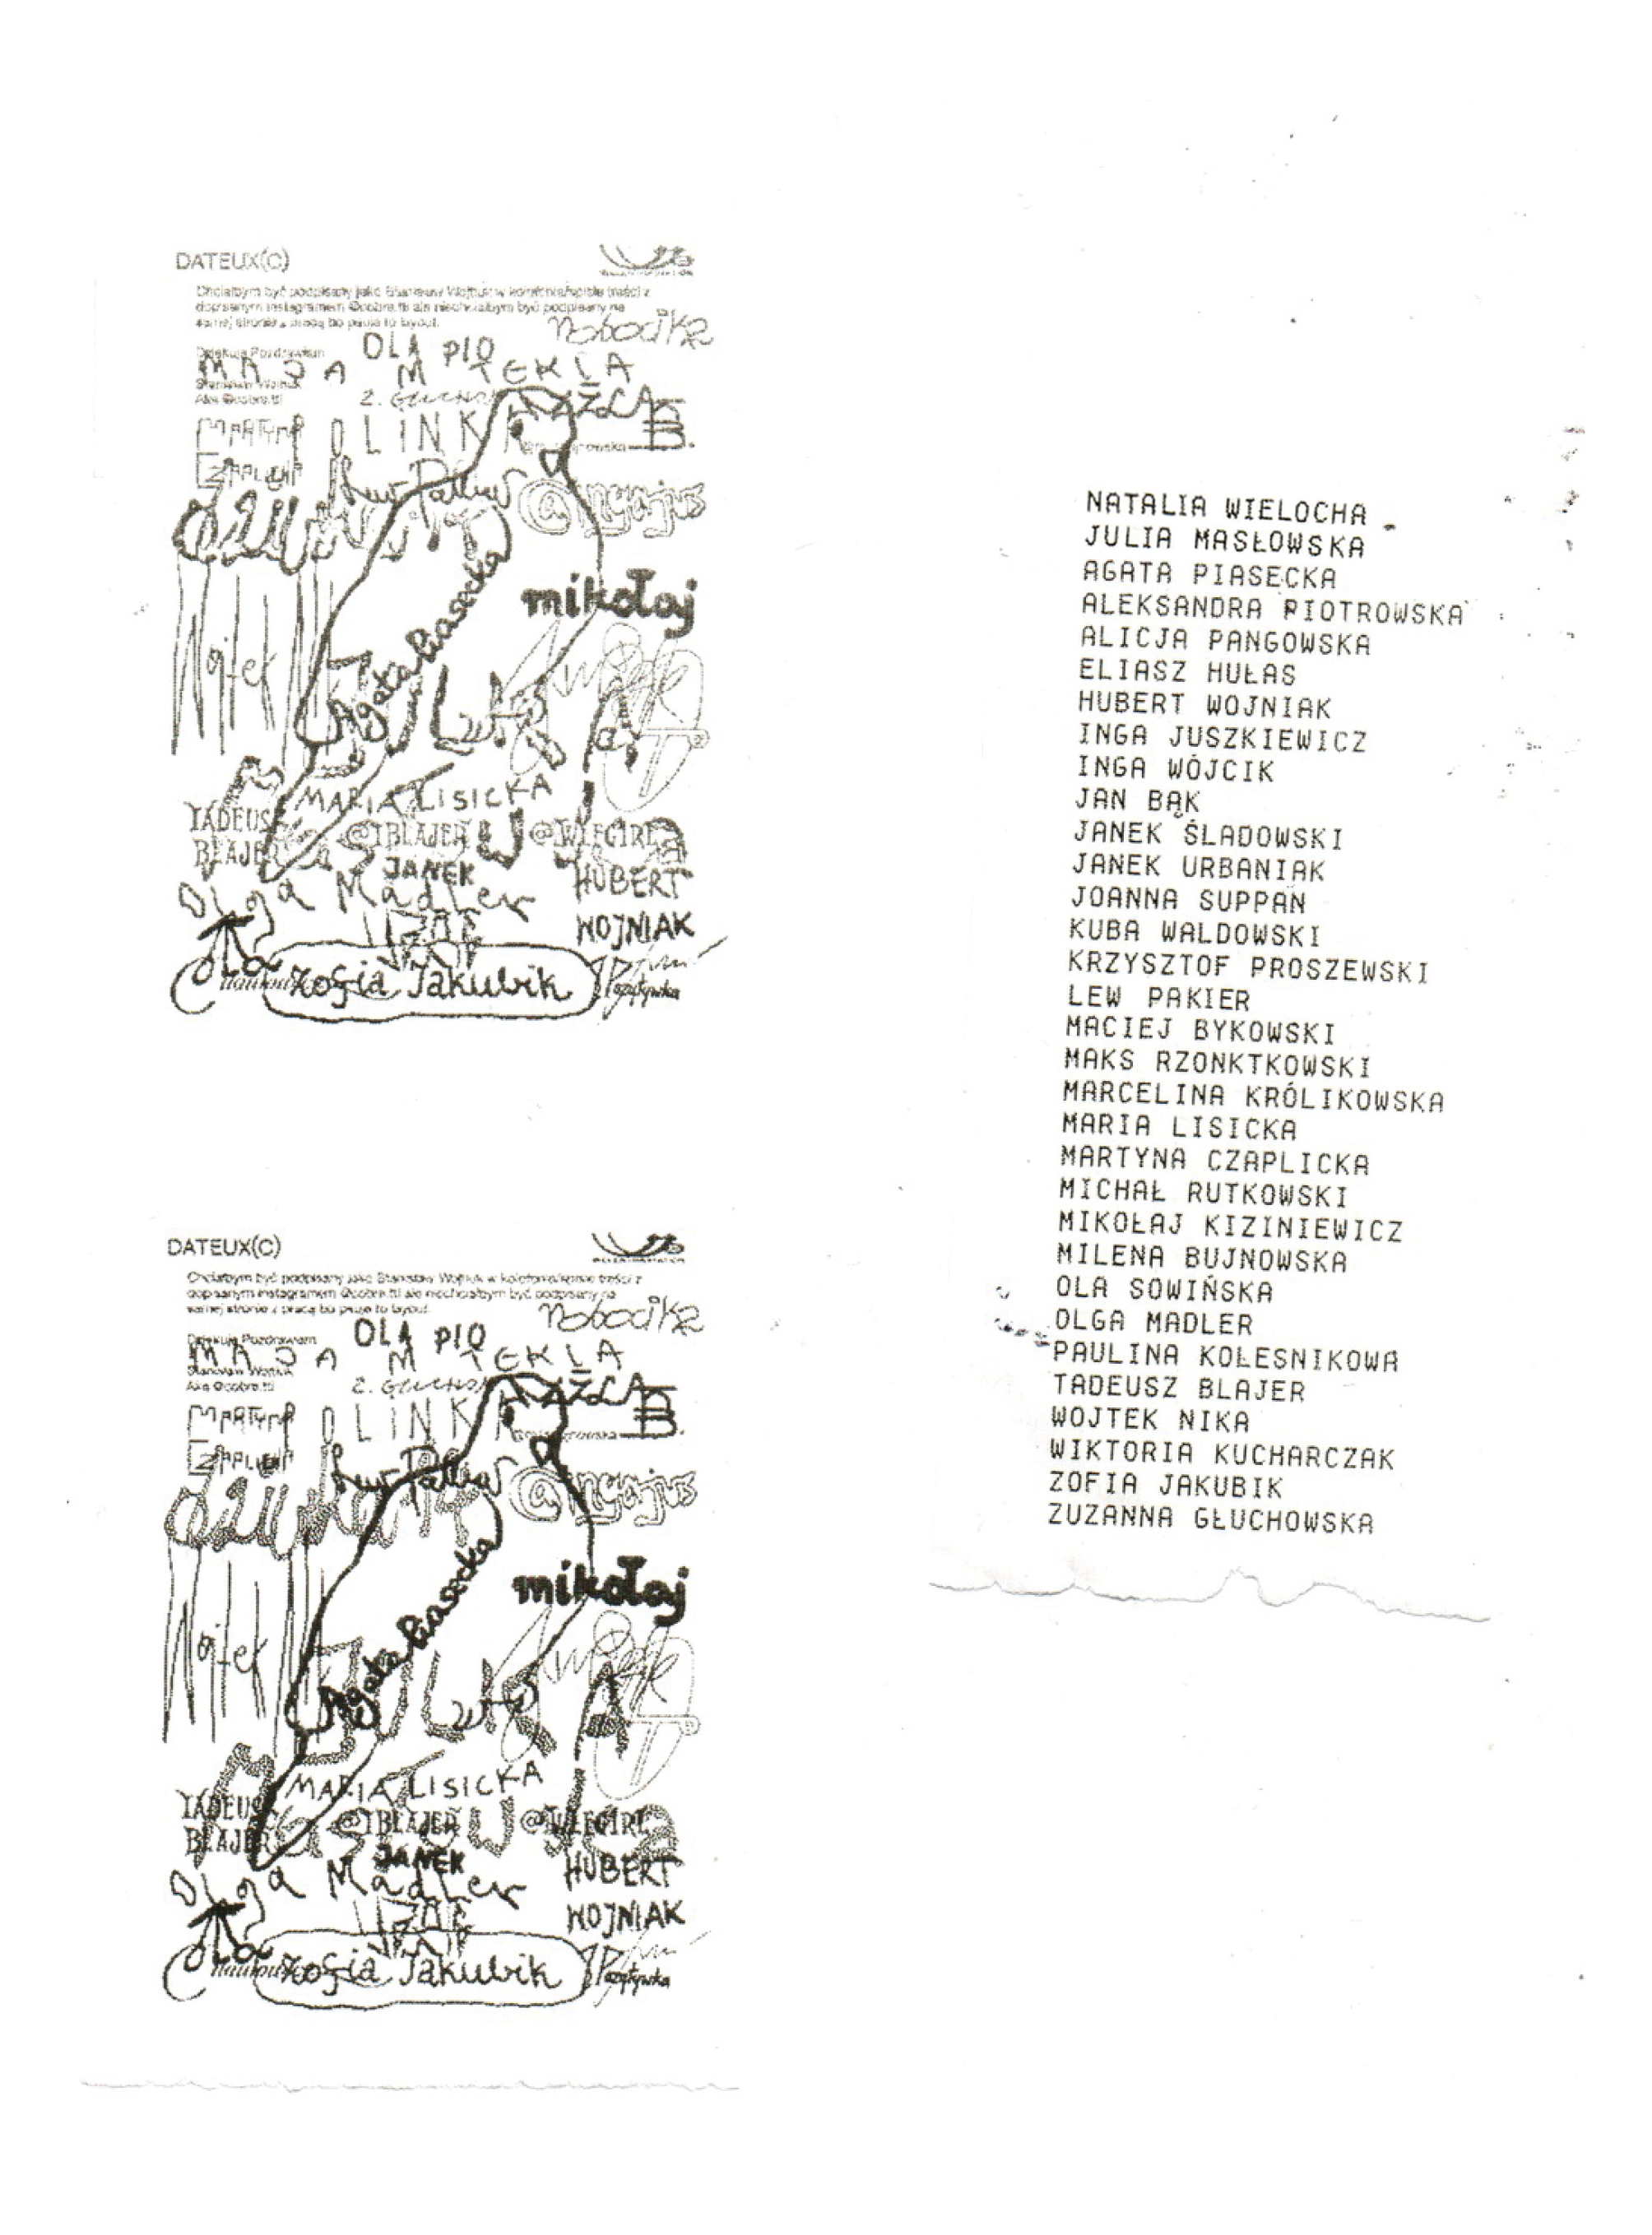 DATEUX(C)
Chciałbym być podpisany jako Stanisław Wojtiuk w kolofonie/spisie treści z
dopisanym instagramem @cobre.ttl ale niechciałbym być podpisany na
samej stronie z pracą bo psuje to layout.
nobocikz
OLA PIO
Dziękuję Pozdrawiam
MAJA M TEKLA
Aka @cobre.ttl
MARTYNA OLINKA
CZAPLICKA
Lew Pakier
@ingajus
mikołaj
Agata Piasecka
Wojtek
JULKA
MARIA LISICKA
TADEUSZ
BLAJER
@TBLAJER
JANEK
HUBERT
WOJNIAK
Olga Madler
Ola
Zofia Jakubik
DATEUX(C)
Chciałbym być podpisany jako Stanisław Wojtiuk w kolofonie/spisie treści z
dopisanym instagramem @cobre.ttl ale niechciałbym być podpisany na
samej stronie z pracą bo psuje to layout.
nobocikz
OLA PIO
Dziękuję Pozdrawiam
MAJA M TEKLA
Aka @cobre.ttl
MARTYNA OLINKA
CZAPLICKA
Lew Pakier
@ingajus
mikołaj
Agata Piasecka
Wojtek
JULKA
MARIA LISICKA
TADEUSZ
BLAJER
@TBLAJER
JANEK
HUBERT
WOJNIAK
Olga Madler
Ola
Zofia Jakubik
NATALIA WIELOCHA
JULIA MASŁOWSKA
AGATA PIASECKA
ALEKSANDRA PIOTROWSKA
ALICJA PANGOWSKA
ELIASZ HUŁAS
HUBERT WOJNIAK
INGA JUSZKIEWICZ
INGA WÓJCIK
JAN BĄK
JANEK ŚLADOWSKI
JANEK URBANIAK
JOANNA SUPPAN
KUBA WALDOWSKI
KRZYSZTOF PROSZEWSKI
LEW PAKIER
MACIEJ BYKOWSKI
MAKS RZONKTKOWSKI
MARCELINA KRÓLIKOWSKA
MARIA LISICKA
MARTYNA CZAPLICKA
MICHAŁ RUTKOWSKI
MIKOŁAJ KIZINIEWICZ
MILENA BUJNOWSKA
OLA SOWIŃSKA
OLGA MADLER
PAULINA KOLESNIKOWA
TADEUSZ BLAJER
WOJTEK NIKA
WIKTORIA KUCHARCZAK
ZOFIA JAKUBIK
ZUZANNA GŁUCHOWSKA